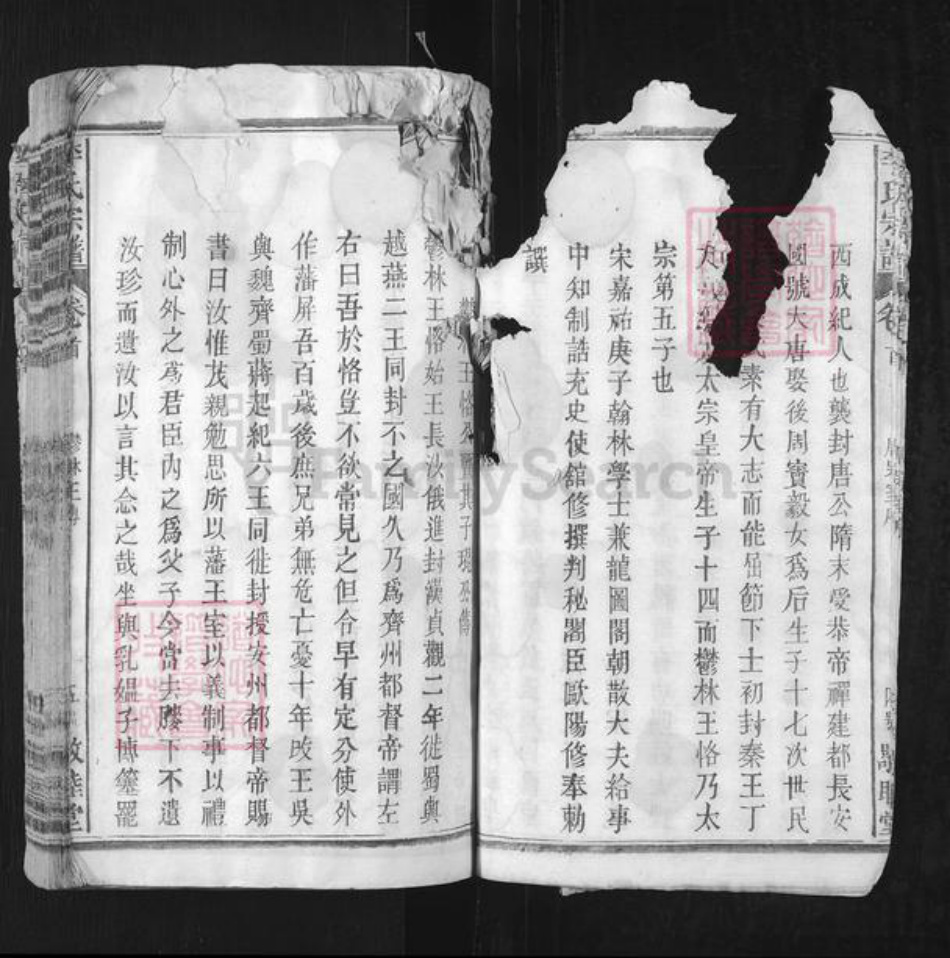 西成紀人也襲封唐公隋末受恭帝禪建都長安
國號大唐娶後周竇毅女爲后生子十七次世民
素有大志而能屈節下士初封秦王丁
太宗皇帝生子十四而鬱林王恪乃太
宗第五子也
宋嘉祐庚子翰林學士兼龍圖閣朝散大夫給事
中知制誥充史使舘修撰判秘閣臣歐陽修奉勅
譔
王恪
其子琨
鬱林王恪始王長沙俄進封漢貞觀二年徙蜀與
越燕二王同封不之國久乃爲齊州都督帝謂左
右曰吾於恪豈不欲常見之但令早有定分使外
作藩屏吾百歲後庶兄弟無危亡憂十年改王吳
與魏齊蜀蔣越紀六王同徙封授安州都督帝賜
書曰汝惟茂親勉思所以藩王室以義制事以禮
制心外之爲君臣內之爲父子今當去膝下不遺
汝珍而遺汝以言其念之哉坐與乳媼子博簺罷
李氏宗譜
卷首
敦睦堂
FamilySearch